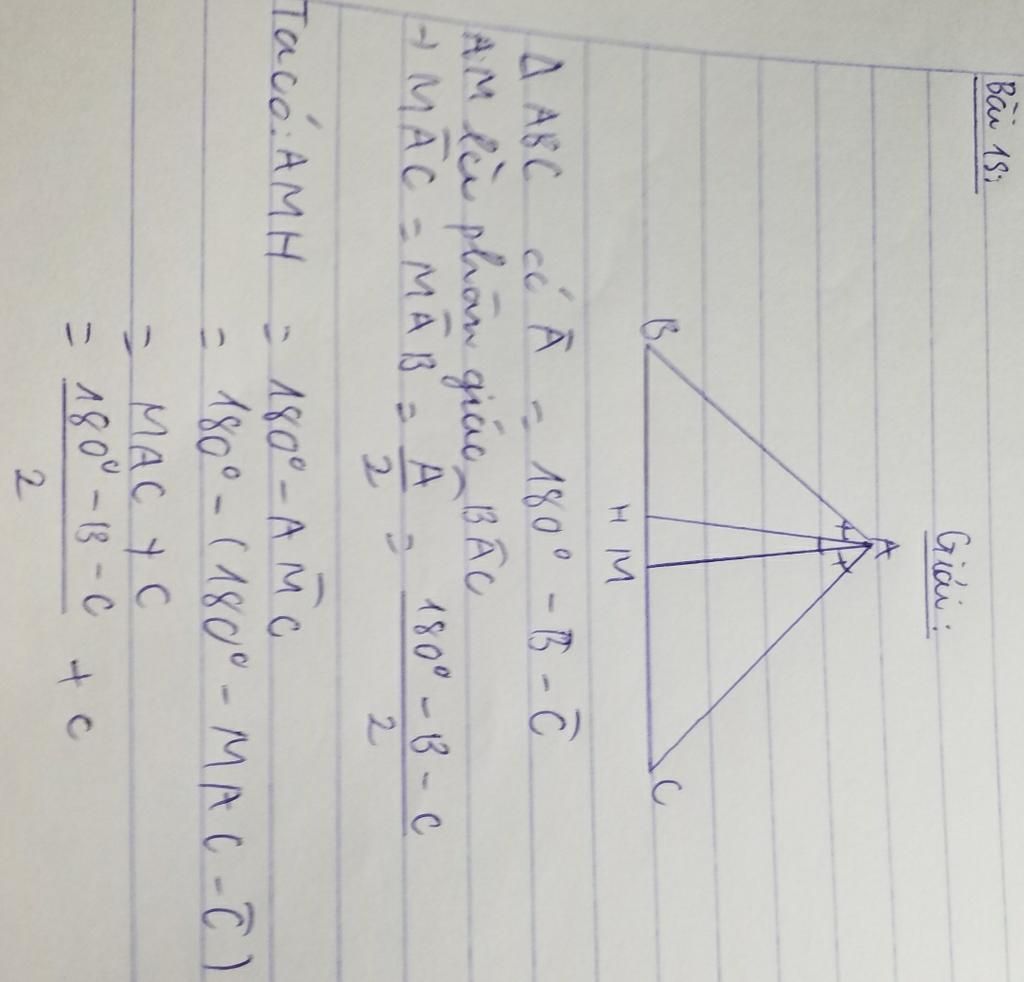 Bài 19:
Giải:
A
B
H
M
C
Δ ABC có A̅ = 180° - B̅ - C̅
AM là phân giác BA̅C
→ MA̅C = MA̅B = A/2 = (180° - B - C)/2
Ta có: AMH = 180° - AM̅C
= 180° - (180° - MAC - C̅)
= MAC + C
= (180° - B - C)/2 + C